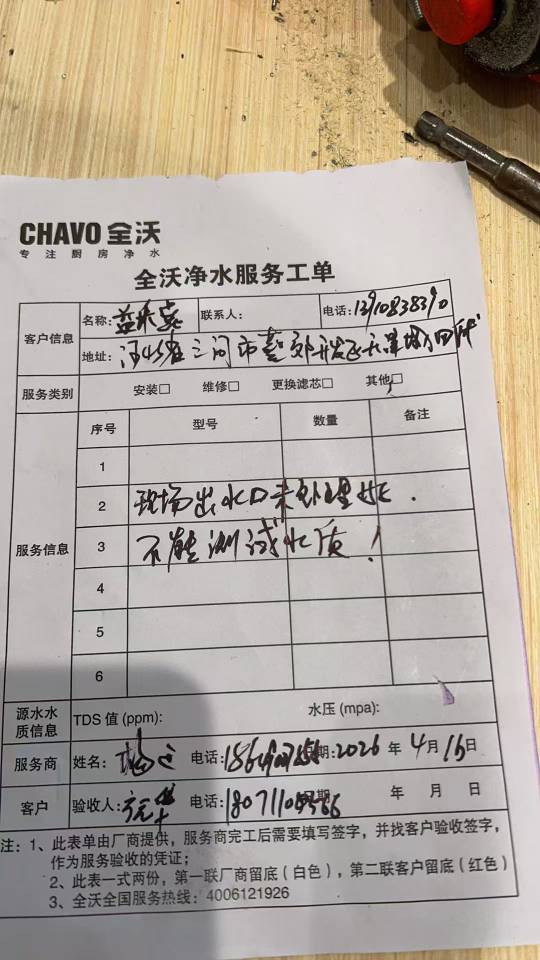 CHAVO 全沃
专注厨房净水
全沃净水服务工单
客户信息 名称: 联系人: 电话:13910838390
地址:
服务类别 安装□ 维修□ 更换滤芯□ 其他□
服务信息 序号 型号 数量 备注
1
2 现场出水口未处理好.
3 不能测试水质!
4
5
6
源水水质信息 TDS 值 (ppm): 水压 (mpa):
服务商 姓名: 电话: 日期:2026 年 4 月 16 日
客户 验收人: 电话: 日期: 年 月 日
注: 1、此表单由厂商提供,服务商完工后需要填写签字,并找客户验收签字,
作为服务验收的凭证;
2、此表一式两份,第一联厂商留底(白色),第二联客户留底(红色)
3、全沃全国服务热线:4006121926